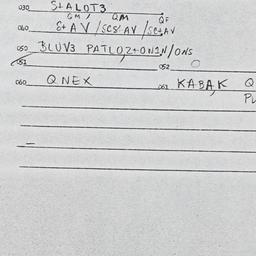 030 S+ALOT3
GM / QM QF
040 S+AV/SCS'AV/SC+AV
050 BLUV3 PATLOZ+ON1N/ONS
051 052 O
060 QNEX 061 KABAK Q
PL